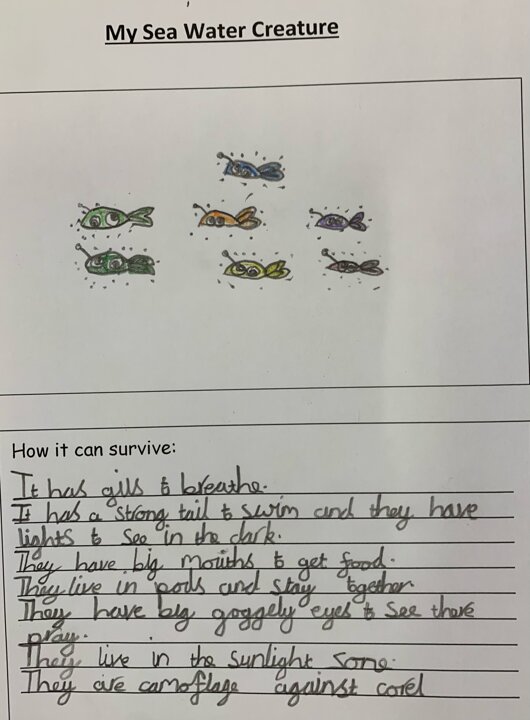 My Sea Water Creature
How it can survive:
It has gills to breathe.
It has a strong tail to swim and they have
lights to see in the dark.
They have big mouths to get food.
They live in pods and stay together.
They have big goggely eyes to see there
pray.
They live in the sunlight sone.
They are camoflage against corel